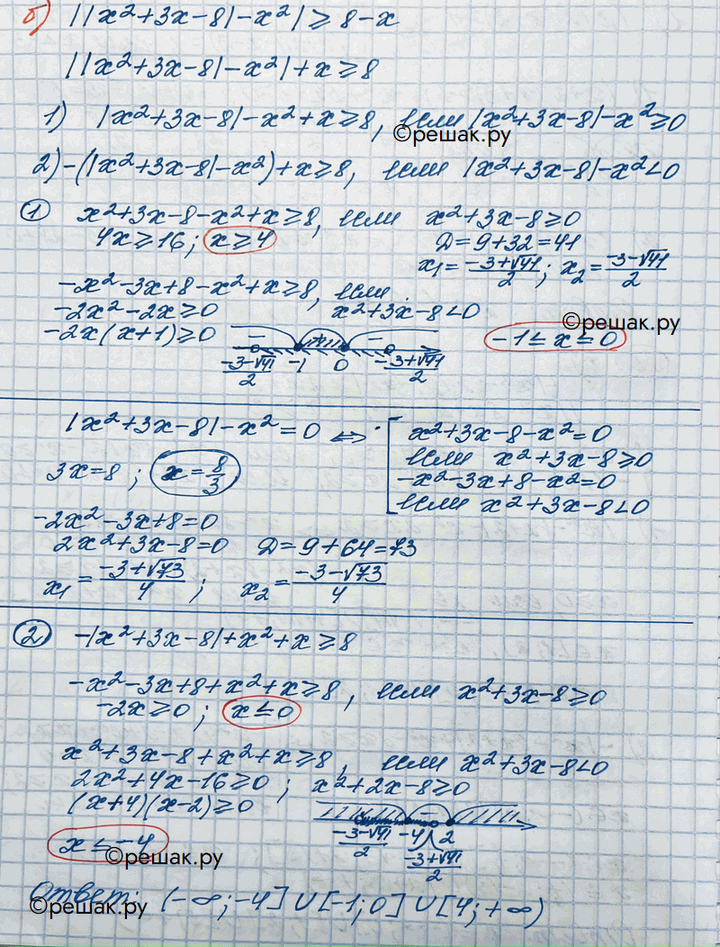 б) ||x²+3x-8|-x²| ≥ 8-x
||x²+3x-8|-x²|+x ≥ 8
1) |x²+3x-8|-x²+x ≥ 8, если |x²+3x-8|-x² ≥ 0
©решак.ру
2) -(|x²+3x-8|-x²)+x ≥ 8, если |x²+3x-8|-x² < 0
① x²+3x-8-x²+x ≥ 8, если x²+3x-8 ≥ 0
4x ≥ 16; x ≥ 4 D=9+32=41
x₁ = (-3+√41)/2; x₂ = (-3-√41)/2
-x²-3x+8-x²+x ≥ 8, если
-2x²-2x ≥ 0 x²+3x-8 < 0
©решак.ру
-2x(x+1) ≥ 0 - + - -1 ≤ x ≤ 0
(-3-√41)/2 -1 0 (-3+√41)/2
|x²+3x-8|-x² = 0 ⇔ [ x²+3x-8-x²=0
если x²+3x-8 ≥ 0
3x=8; x = 8/3 -x²-3x+8-x²=0
если x²+3x-8 < 0
-2x²-3x+8=0
2x²+3x-8=0 D=9+64=73
x₁ = (-3+√73)/4; x₂ = (-3-√73)/4
② -|x²+3x-8|+x²+x ≥ 8
-x²-3x+8+x²+x ≥ 8, если x²+3x-8 ≥ 0
-2x ≥ 0; x ≤ 0
x²+3x-8+x²+x ≥ 8, если x²+3x-8 < 0
2x²+4x-16 ≥ 0; x²+2x-8 ≥ 0
(x+4)(x-2) ≥ 0
(-3-√41)/2 -4 2
(-3+√41)/2
x ≤ -4
©решак.ру
Ответ: (-∞;-4]∪[-1;0]∪[4;+∞)
©решак.ру